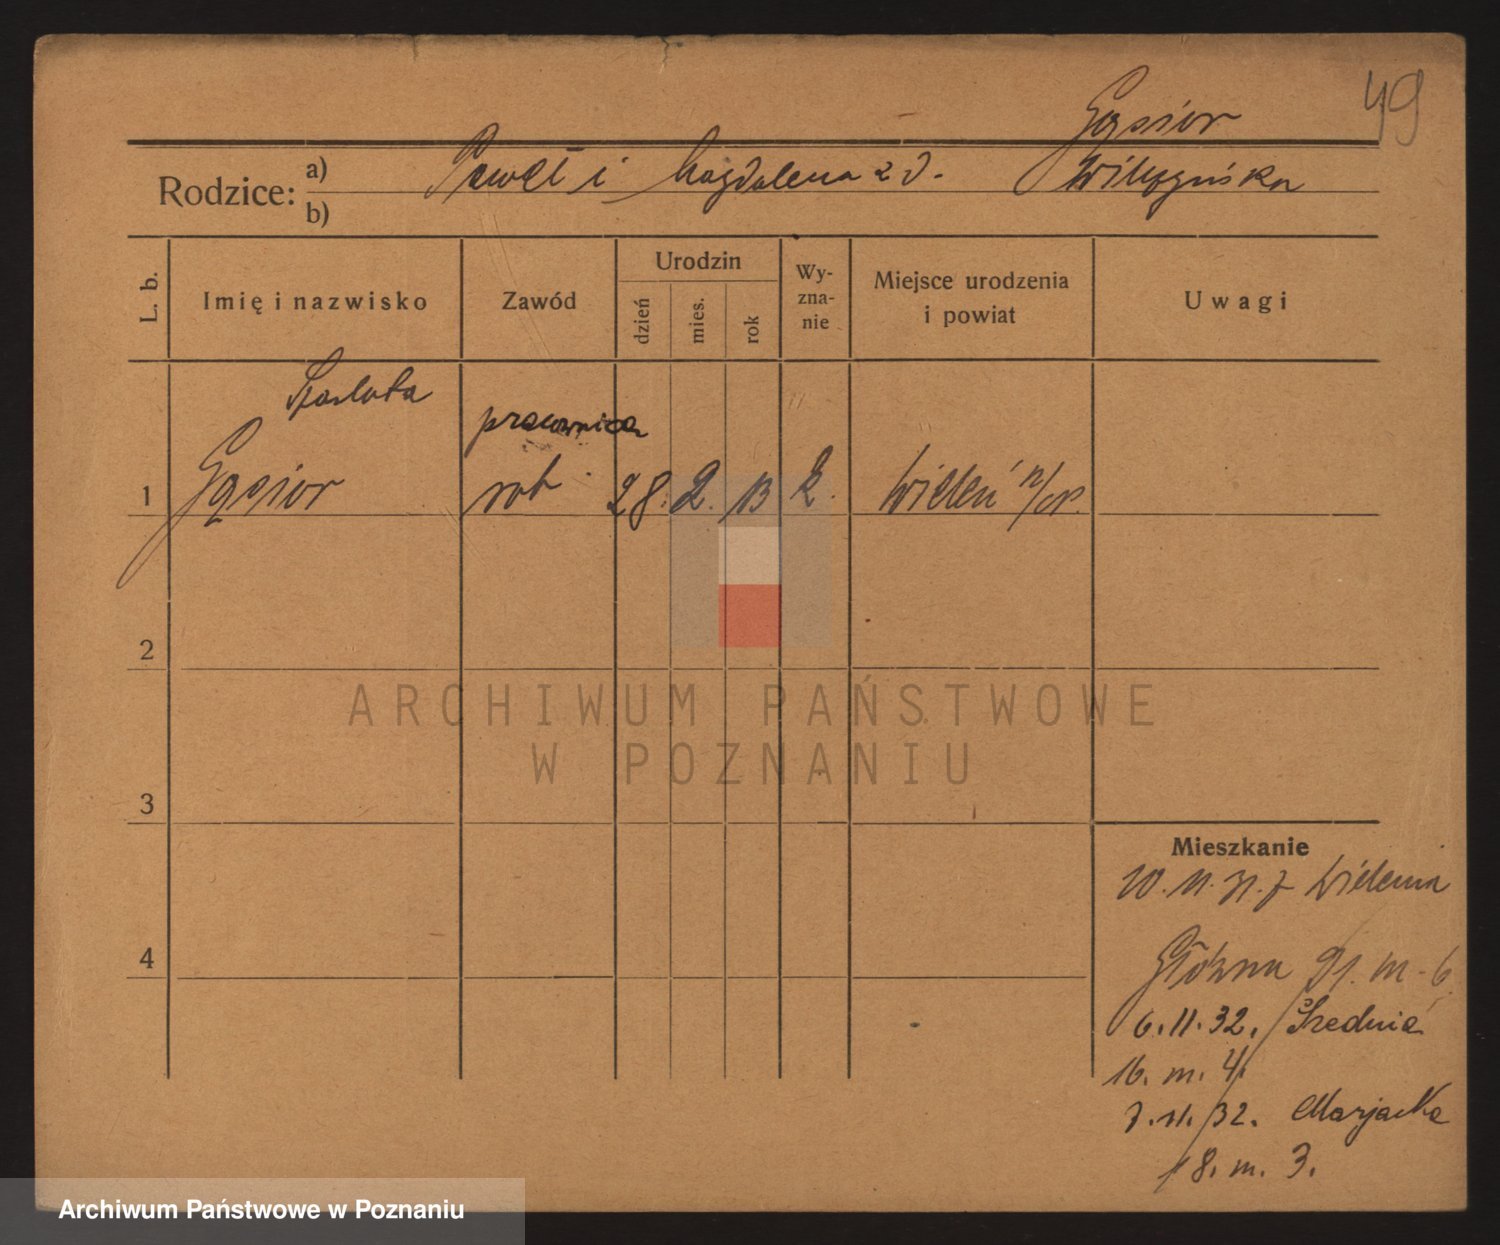 49
Gąsior
Rodzice: a) Paweł i Magdalena z d.
b)
L. b.
Imię i nazwisko
Zawód
Urodzin
dzień
mies.
rok
Wy-
zna-
nie
Miejsce urodzenia
i powiat
Uwagi
pracownica
1 Gąsior rob 28. 2. 13 Wieleń n/N.
2
3
4
Mieszkanie
10. 11. 31. z Wielenia
Główna 91. m. 6.
6. 11. 32. Średnia
16. m. 4.
7. 11. 32. Marjacka
18. m. 3.
ARCHIWUM PAŃSTWOWE
W POZNANIU
Archiwum Państwowe w Poznaniu